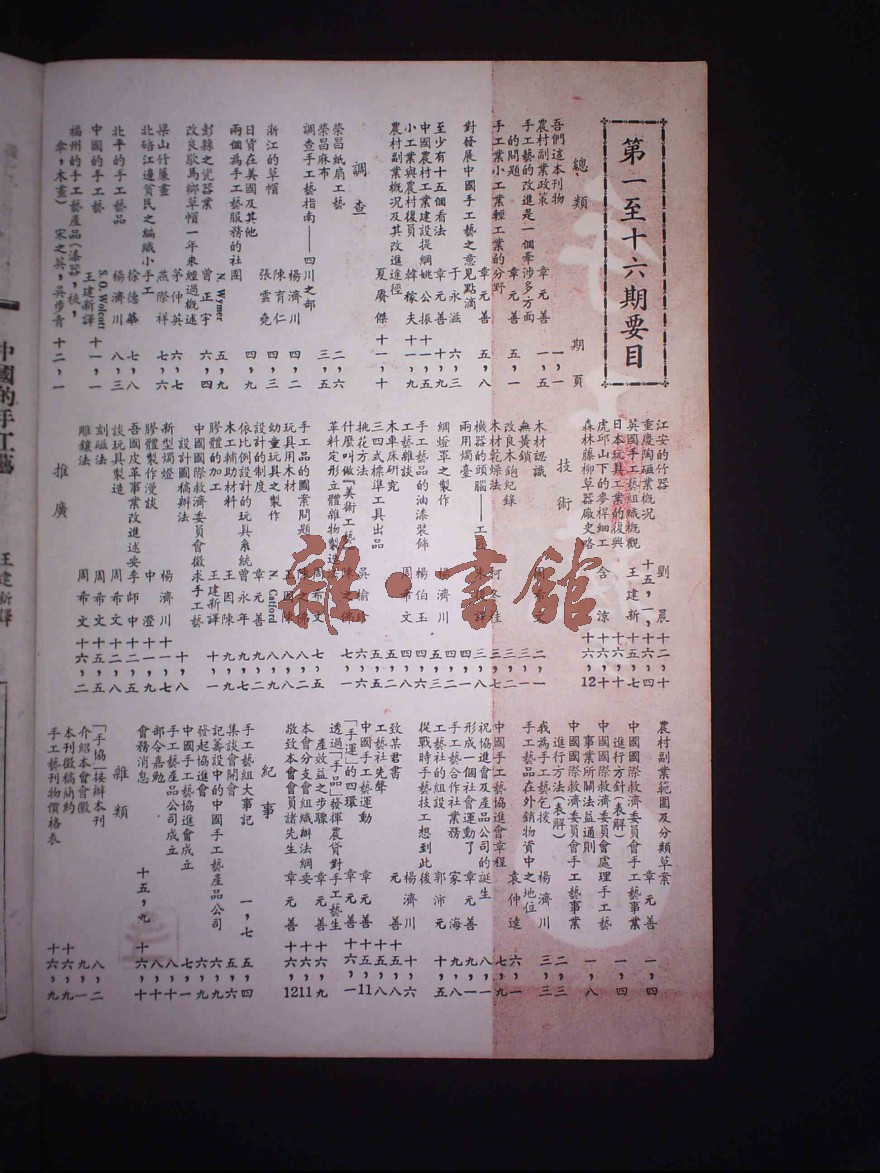 第一至十六期要目
總類 期 頁
吾們這本刊物 一,一
農村副業政策 章元善 一,五
手工藝的改進是一個牽涉多方面
的問題 章元善 五,一
手工業小工業輕工業的分野 章元善 五,八
對發展中國手工藝之意見點滴 于永滋 六,三
至少有十五個看法 章元善 十,九
中國農村工業建設提綱 姚公振 十一,一
小工業與農村復員 韓稼夫 十一,九
農村副業概況及其改進途徑 夏賡傑 十一,十
調查
榮昌紙扇工藝 二,六
榮昌麻布 三,五
調查手工藝指南——四川之部
楊濟川 四,二
浙江的草帽 陳育仁 四,三
日貨在美國及其他 張雲堯 四,九
兩個為手工藝服務的社團 N. Wymer 五,九
彭縣之瓷器業 曾正宇 六,四
改良歇馬鄉草帽一年來經過概述
茅仲英 六,七
梁山竹簾畫 燕際祥 七,六
北碚江邊貧民之編織小手工 徐德華 七,八
北平的手工藝品 楊濟川 八,三
中國的手工藝 S. O. Wolcott 王建新譯 十一,一
福州的手工藝產品(漆器,梳,
傘,木畫) 宋之英,吳步青 十二,一
江安的竹器 劉晨 十二,十
重慶陶磁業概況 十五,一,十六,四
英國手工藝組織概觀 王建新 十五,七
日本玩具工業的復興 十六,十
虎邱山下的麥桿細工 含涼 十六,十
森林藤柳草器廠史略 十六,12
技術
木材認識 周希文 二,一
無簧鎖 三,一
改良木鉋紀錄 三,二
木材乾燥法 柯冬佳 三,七
機器的頭腦——工 朱 譯 三,八
兩用燭臺 四,八
綢燈罩之製作 楊濟川 四,二
手工藝品的油漆裝飾 楊伯玉 四,四
工藝雜談 周希文 四,八
木車床研究 五,二
三四式標準工具出品 五,六
挑花方法 吳榆珍 六,六
什麼叫做『美術工藝』 陳之佛 七,一
革料定形立體雜物製造法 周希文 七,五
手工品的圖案問題 陳之佛 八,二
玩具用木材 王因陳 八,八
幼童玩具之製作 N. Catford 八,九
設計的制度 章元善 九,二
依比例設計的玩具系統 曾永年 九,七
木工輔助材料 王因陳 九,九
膠體的加工 王建新譯 十,一
中國國際救濟委員會徵求手工藝
設計圖稿辦法 十,八
新型燭燈 楊濟川 十一,七
膠體製作漫談 中澄 十一,九
吾國皮革事業改進述要 李師中 十二,五
談玩具製造 周希文 十二,八
刻磁法 周希文 十五,五
雕鑲法 周希文 十六,二
推廣
農村副業範圍及分類草案
章元善 一,四
中國國際救濟委員會手工藝事業
進行方針(表解) 一,四
中國國際救濟委員會處理手工藝
事業所關法益通則 一,八
中國國際救濟委員會手工藝事業
進行方法(表解) 二,三
我為手工藝乞援 楊濟川 三,三
手工藝品在外銷物資中之地位
袁仲逵 六,一
中國手工藝協進會章程 七,九
祝協進會及產品公司的誕生 八,一
形成一個社會運動了 章元善 九,一
手工藝合作社業務 家海 九,八
工藝社的組設 郭沛元 十,五
從戰時手藝技工想到此後
楊濟川 十,六
致某君書 元善 十五,八
工藝社先聲 十五,八
中國手工藝運動 章元善 十五,11
「手運」的四環 章元善 十六,一
透過「手品」發揮農貸對手工藝生
產效益之步驟 章元善 十六,九
本會分支會組織辦法綱要 十六,11
敬致本會會員諸先生 章元善 十六,12
紀事
手工藝組大事記 一,七 五,四
集談會開會 五,六
記籌設中的中國手工藝產品公司 六,九
發起協進會 六,九
中國手工藝協進會成立 七,一
手工藝產品公司成立 八,十
部令嘉勉 八,十
會務消息 十五,九 十六,十
雜類
「手協」接辦本刊 八,二
介紹本會會徽 九,一
本刊徵稿簡約 十六,九
手工藝刊物價格表 十六,九
中國的手工藝
王建新譯
雜·書館